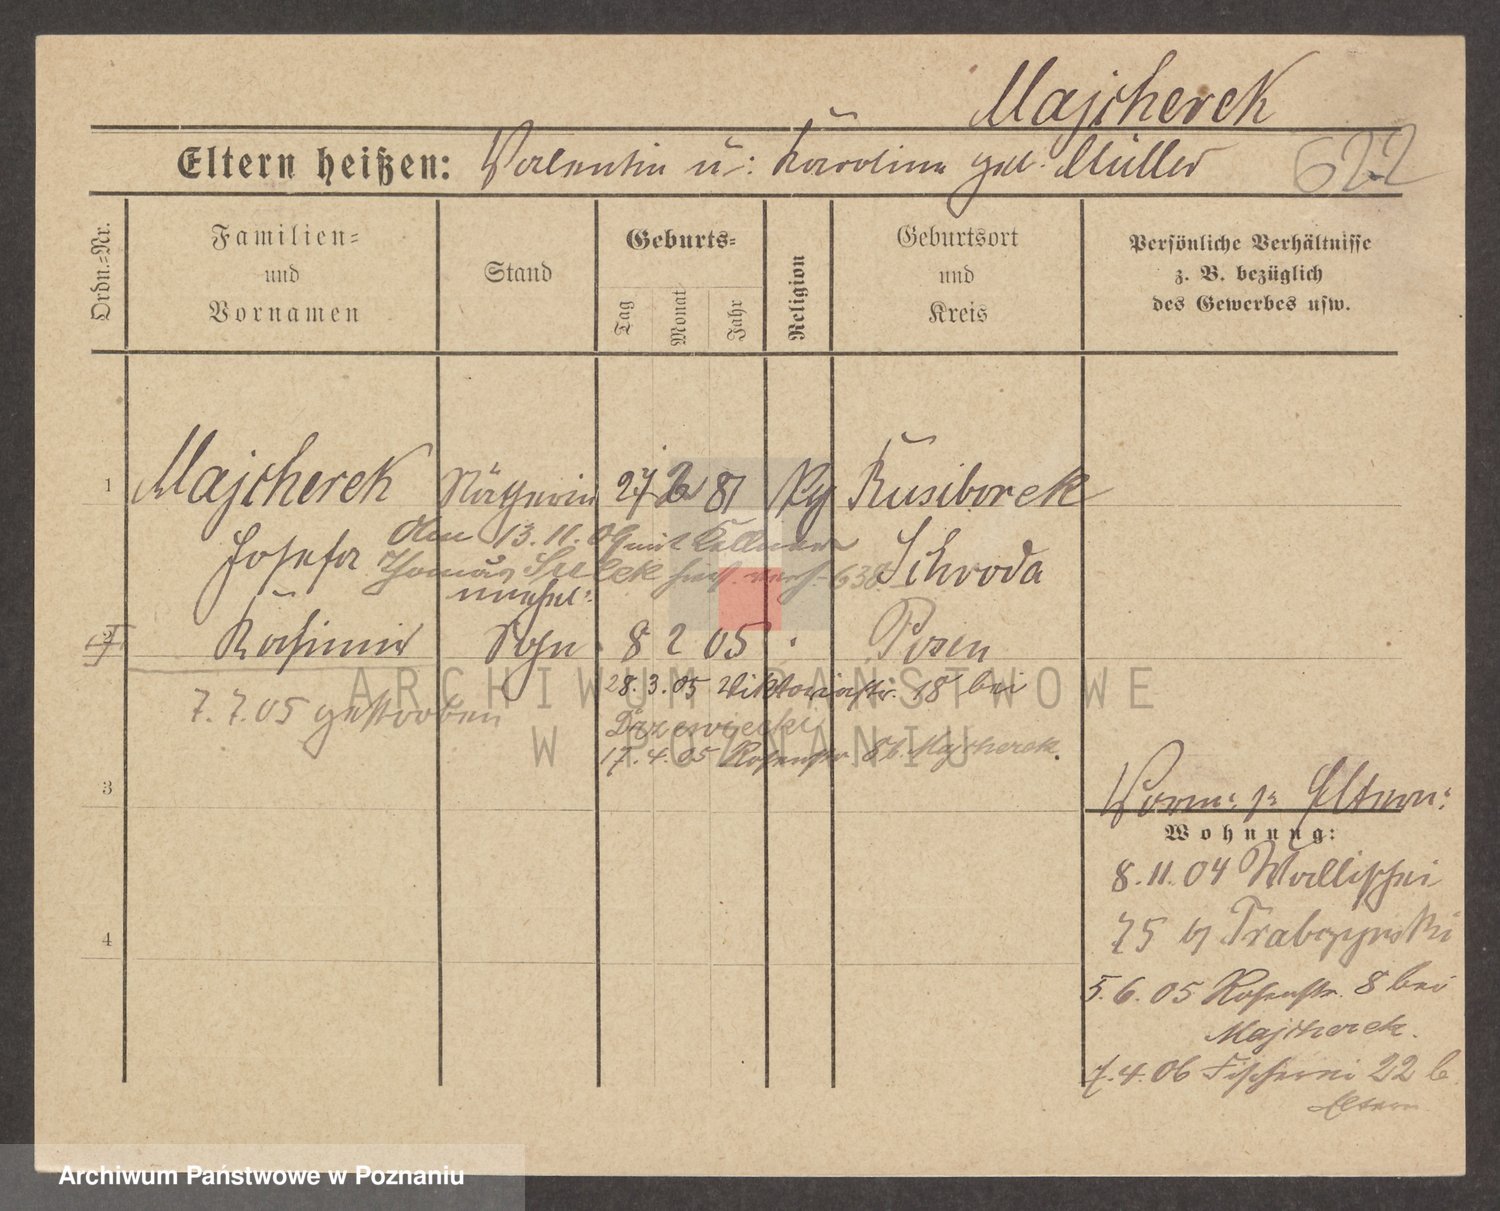 Majcherek
Eltern heißen: Valentin u: Karolina geb. Müller 622
Ordn.-Nr.
Familien-
und
Vornamen
Stand
Geburts-
Tag
Monat
Jahr
Religion
Geburtsort
und
Kreis
Persönliche Verhältnisse
z. B. bezüglich
des Gewerbes usw.
1 Majcherek Nätherin 27 81 Rusiborek
Josefa Schroda
13.11.09 mit Kellner
Thomas 638
unehel:
2 Kasimir Sohn 8 2 05 Posen
7.7.05 gestorben
28.3.05 Viktoriastr. 18 bei
Drzewiecki
17.4.05 Rosenstr 8 b. Majcherek.
3
Eltern:
Wohnung:
8.11.04 Wallischei
75 Trabczynski
4
5.6.05 Rosenstr. 8 bei
Majcherek.
7.4.06 Fischerei 22 b.
Eltern
ARCHIWUM PAŃSTWOWE
W POZNANIU
Archiwum Państwowe w Poznaniu